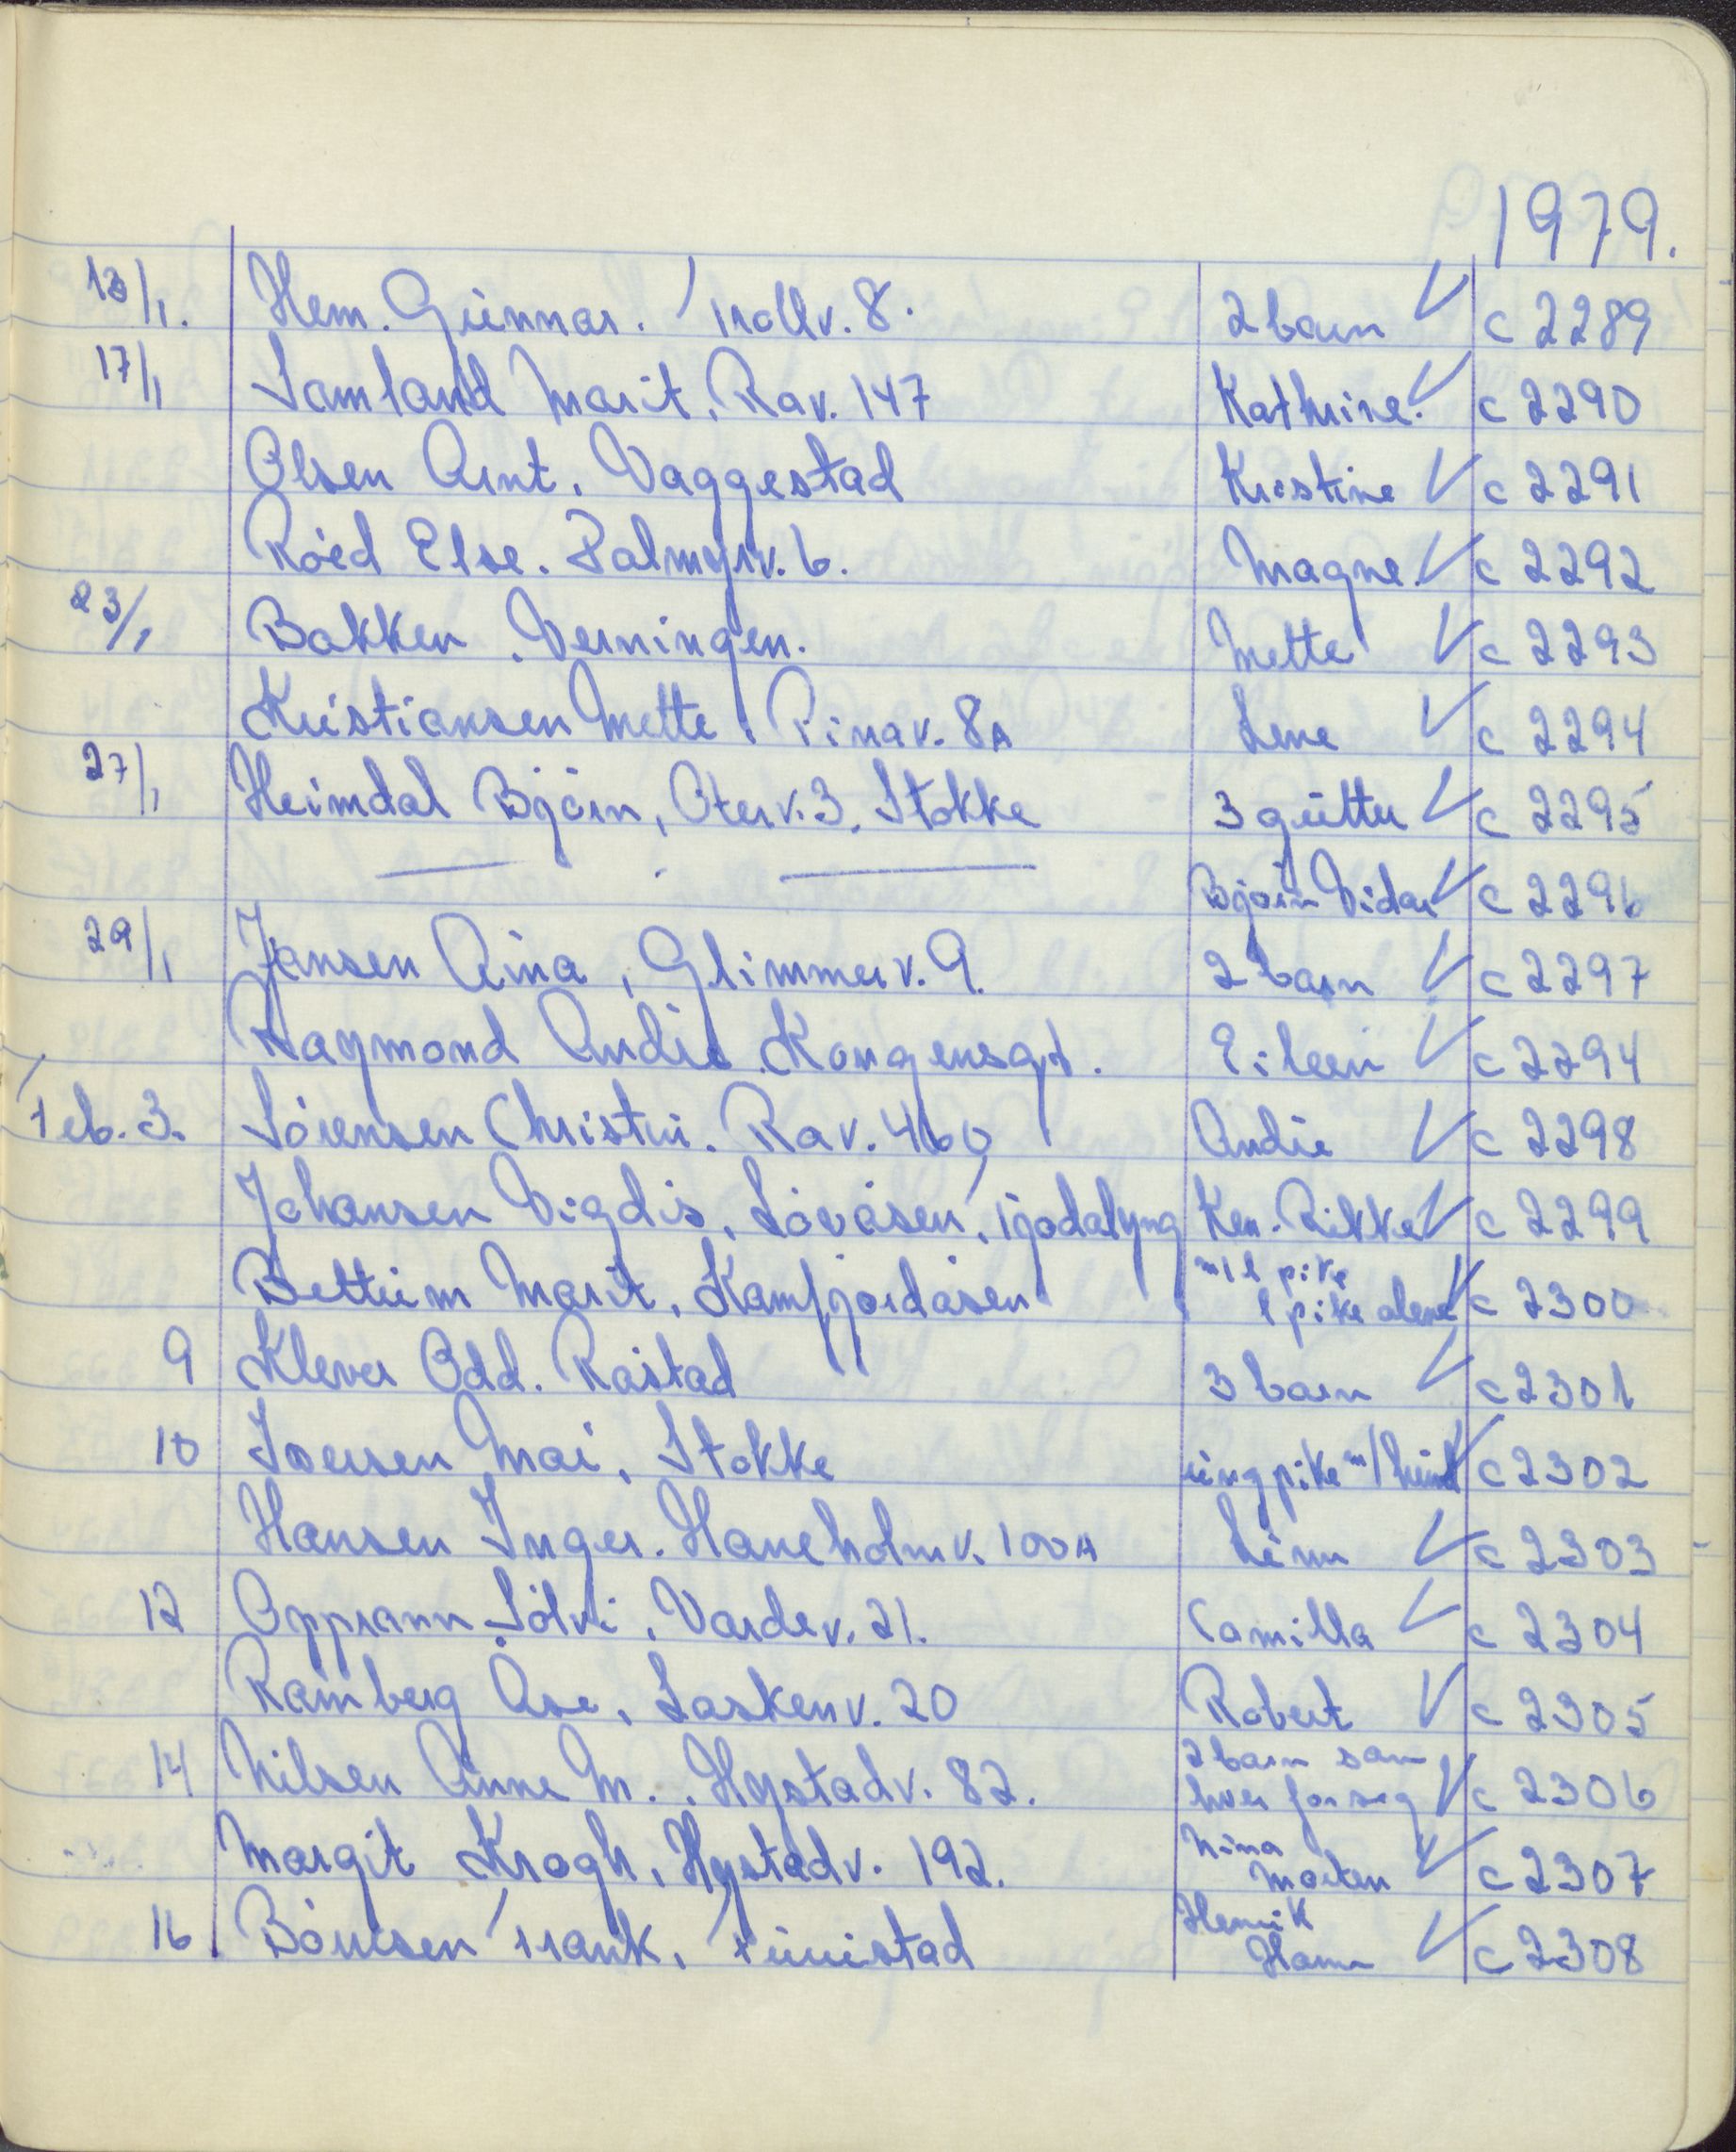 1979.
13/1. Hem. Gunnar. Trollv. 8. 2 barn V c 2289
17/1 Samland Marit, Rav. 147 Kathrine. V c 2290
Olsen Arnt, Vaggestad Kristine V c 2291
Röed Else. Palmyrv. 6. Magne. V c 2292
23/1 Bakken, Verningen. Mette V c 2293
Kristiansen Mette, Pinav. 8A Lene V c 2294
27/1 Heimdal Björn, Oterv. 3, Stokke 3 gutter V c 2295
— . — Björn Vidar V c 2296
29/1 Jansen Aina, Glimmerv. 9. 2 barn V c 2297
Raymond Kongensgt. Eileen V c 2294
Feb. 3. Sörensen Christin. Rav. 460 V c 2298
Johansen Vigdis, Lövåsen, Fjodalyng Ken. Rikke V c 2299
Bettum Marit, Kamfjordåsen m/1 pike
1 pike alene V c 2300
9 Klever Odd. Råstad 3 barn V c 2301
10 Iversen Mai, Stokke ung pike m/hund V c 2302
Hansen Inger. Haneholmv. 100A Linn V c 2303
12 Opprann Sölvi, Vardev. 21. Camilla V c 2304
Ramberg Åse, Laskenv. 20 Robert V c 2305
14 Nilsen Anne M., Hystadv. 82. 2 barn sam
hver for seg V c 2306
Margit Krogh, Hystadv. 192. Nina
Morten V c 2307
16 Böntsen Frank, Furustad Henrik
Hans V c 2308